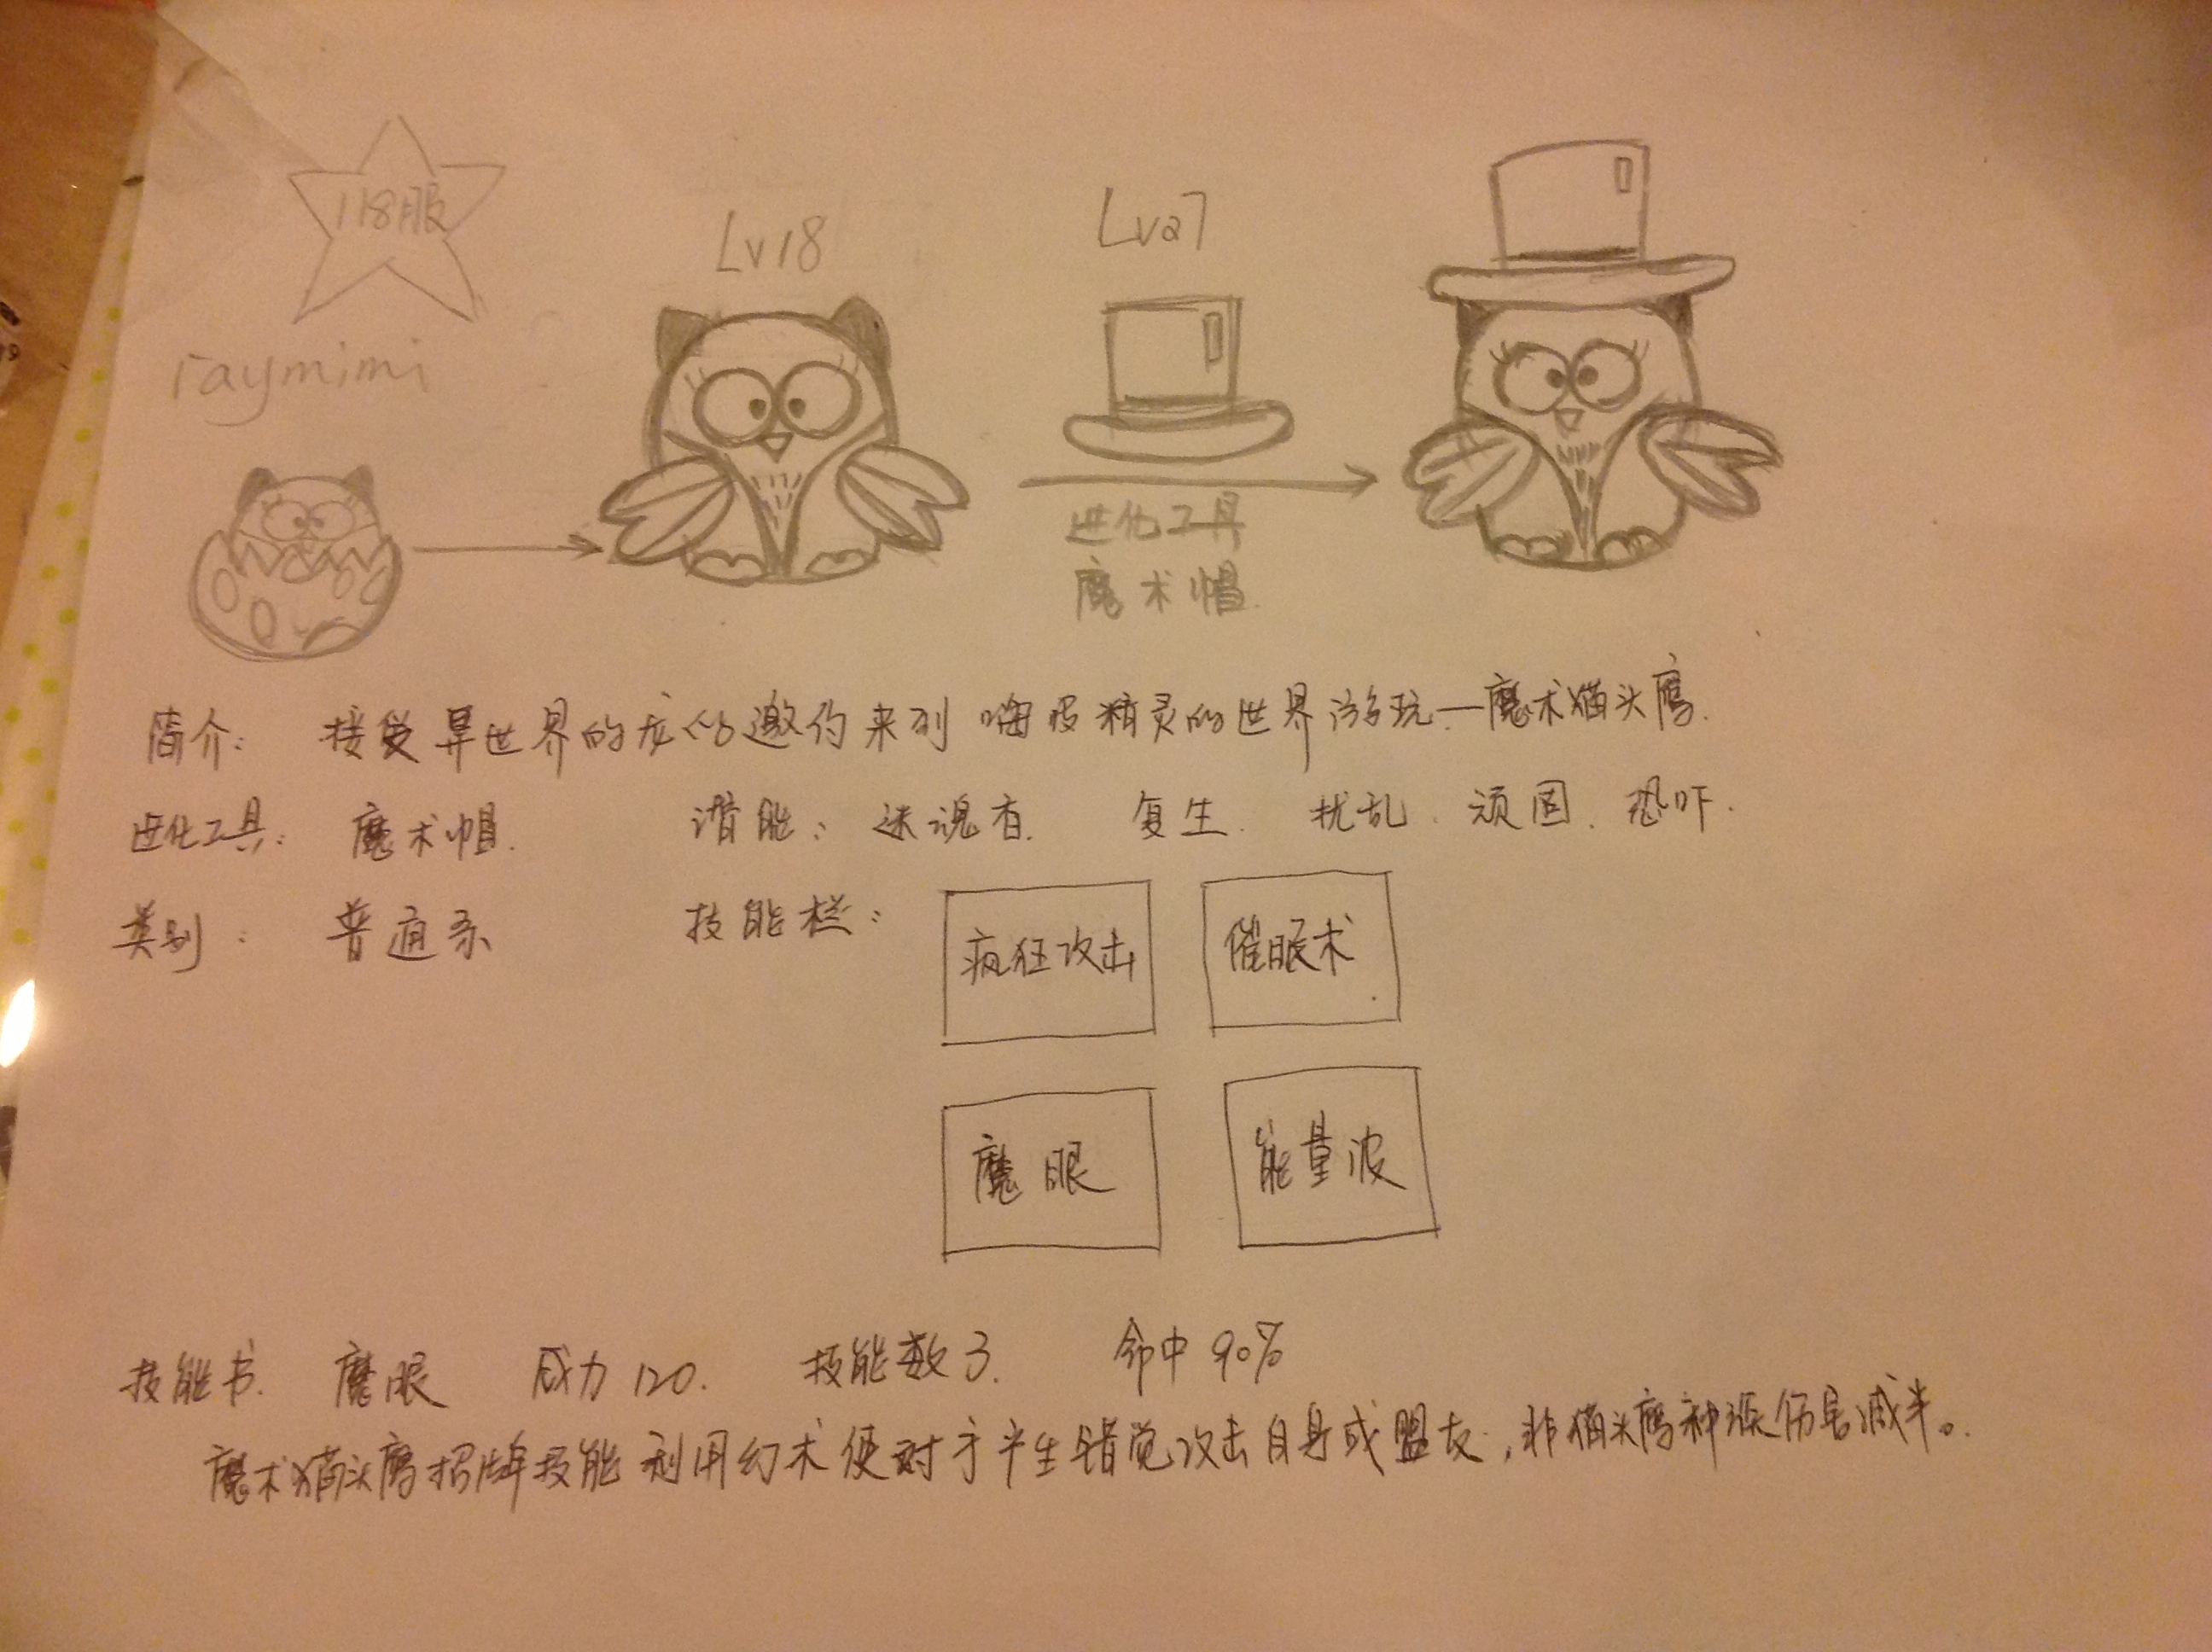 118服
raymimi
Lv18
Lv27
进化工具
魔术帽
简介: 接受异世界的龙的邀约来到嗨皮精灵的世界游玩—魔术猫头鹰.
进化工具: 魔术帽. 潜能: 迷魂香. 复生. 扰乱. 顽固. 恐吓.
类别: 普通系 技能栏:
疯狂攻击 催眠术
魔眼 能量波
技能书. 魔眼 威力120. 技能数3. 命中90%
魔术猫头鹰招牌技能利用幻术使对手产生错觉攻击自身或盟友,非猫头鹰种族伤害减半。